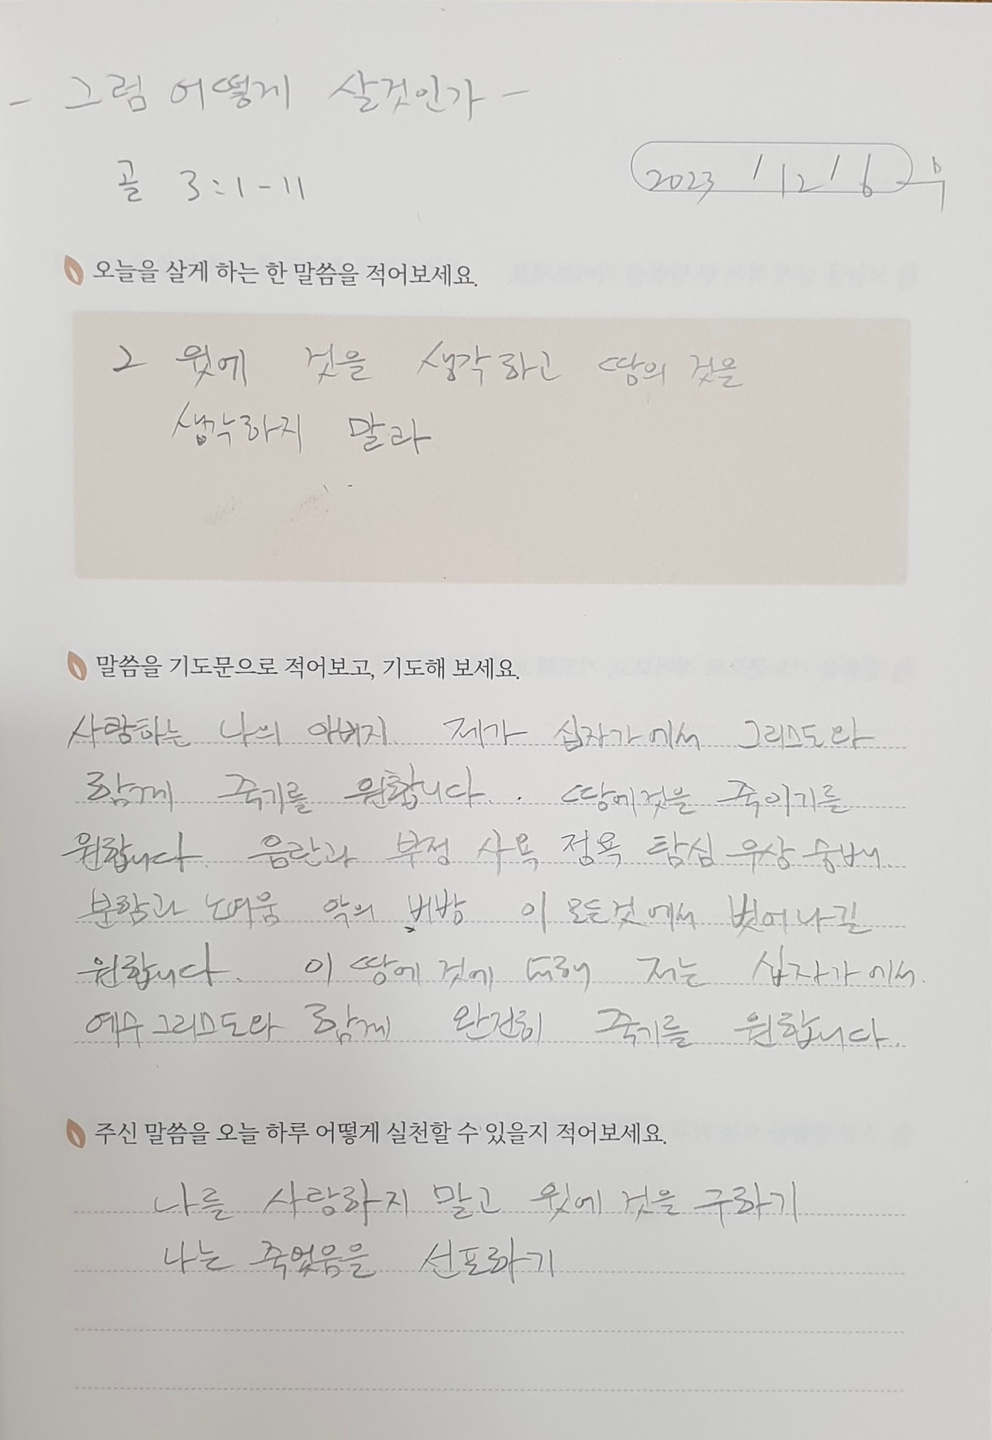 - 그럼 어떻게 살것인가 -
골 3:1-11
2023 / 12 / 6 수
오늘을 살게 하는 한 말씀을 적어보세요.
2 윗에 것을 생각하고 땅의 것을
생각하지 말라
말씀을 기도문으로 적어보고, 기도해 보세요.
사랑하는 나의 아버지 제가 십자가에서 그리스도와
함께 죽기를 원합니다.. 땅에것을 죽이기를
원합니다. 음란과 부정 사욕 정욕 탐심 우상 숭배
분함과 노여움 악의 비방 이 모든것에서 벗어나길
원합니다. 이 땅에 것에 대해 저는 십자가에서
예수그리스도와 함께 완전히 죽기를 원합니다.
주신 말씀을 오늘 하루 어떻게 실천할 수 있을지 적어보세요.
나를 사랑하지 말고 윗에 것을 구하기
나는 죽었음을 선포하기